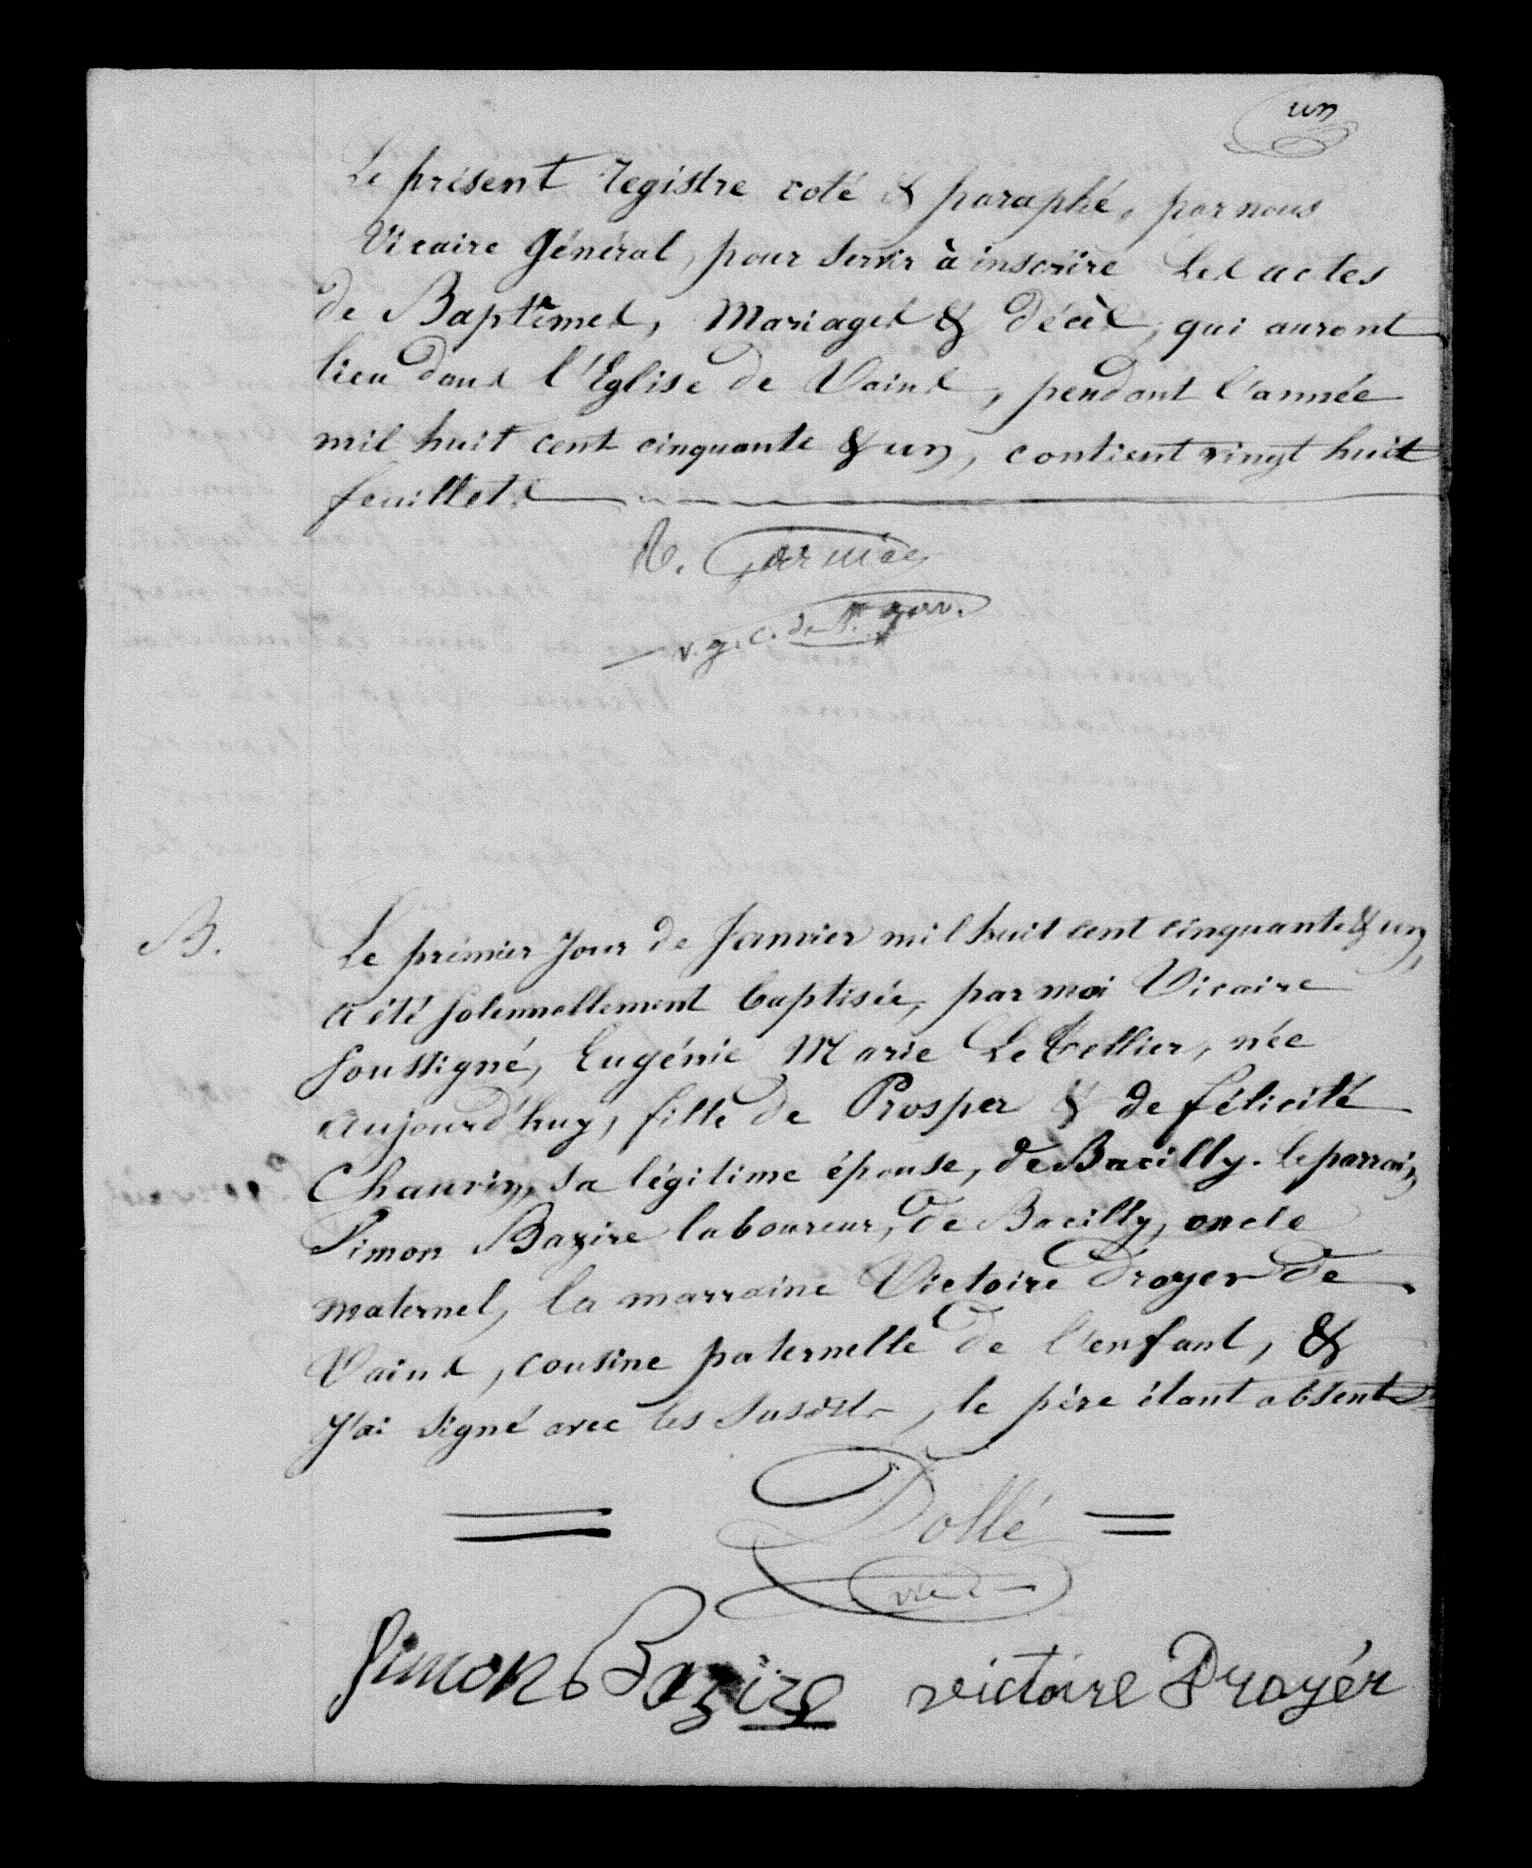 un
Le présent registre coté & paraphé, par nous
Vicaire Général, pour servir à inscrire les actes
de Baptêmes, Mariages & décès, qui auront
lieu dans l'Eglise de Vains, pendant l'année
mil huit cent cinquante & un, contient vingt huit
feuillets
Garnier
v. g. c. de
B.
Le prémier jour de Janvier mil huit cent cinquante & un,
a été solennellement baptisée, par moi Vicaire
soussigné, Eugénie Marie Le tellier, née
aujourd'huy, fille de Prosper & de félicité
Chauvin, sa légitime épouse, de Bacilly. le parrain
Simon Bazire laboureur, de Bacilly, oncle
maternel, la marraine Victoire Droyer de
Vains, cousine paternelle de l'enfant, &
j'ai signé avec les susdits, le père étant absent
Dollé
vic
Simon Bazire victoire Drayér